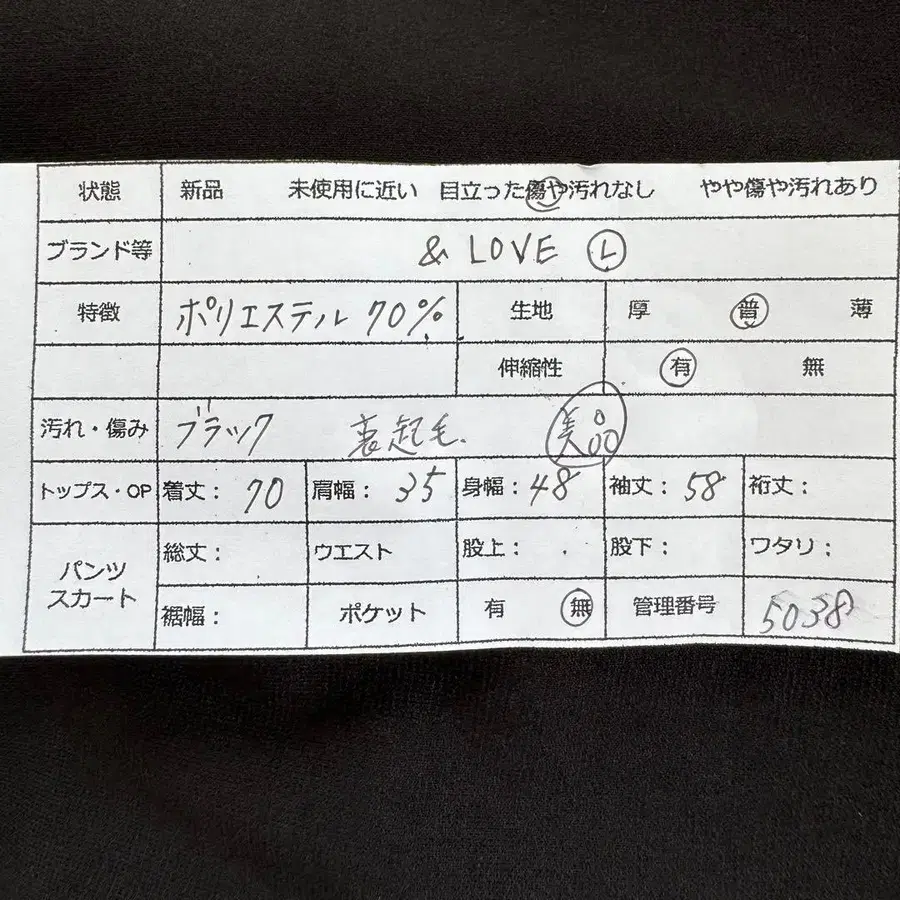 状態 新品 未使用に近い 目立った傷や汚れなし やや傷や汚れあり
ブランド等 & LOVE L
特徴 ポリエステル 70% 生地 厚 普 薄
伸縮性 有 無
汚れ・傷み ブラック 裏起毛. 美品
トップス・OP 着丈: 70 肩幅: 35 身幅: 48 袖丈: 58 裄丈:
パンツ スカート 総丈: ウエスト 股上: 股下: ワタリ:
裾幅: ポケット 有 無 管理番号 5038